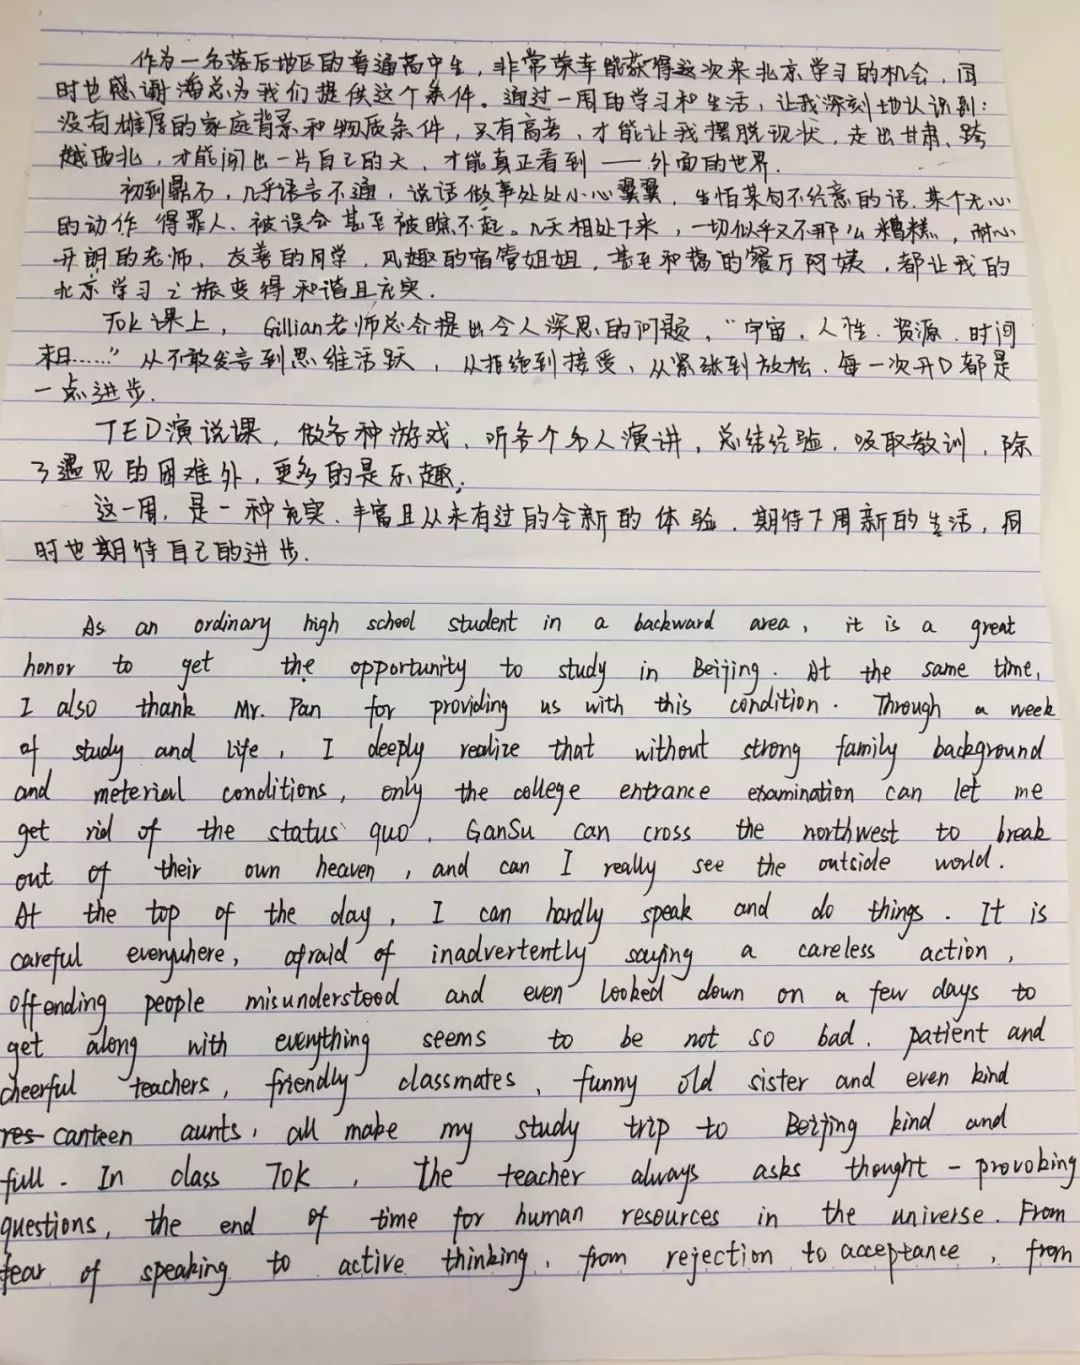 作为一名落后地区的普通高中生，非常荣幸能获得这次来北京学习的机会，同
时也感谢潘总为我们提供这个条件。通过一周的学习和生活，让我深刻地认识到：
没有雄厚的家庭背景和物质条件，只有高考，才能让我摆脱现状，走出甘肃、跨
越西北，才能闯出一片自己的天、才能真正看到——外面的世界.
初到鼎石，几乎语言不通，说话做事处处小心翼翼，生怕某句不经意的话、某个无心
的动作 得罪人、被误会甚至被瞧不起。几天相处下来，一切似乎又不那么糟糕，耐心
开朗的老师、友善的同学、风趣的宿管姐姐，甚至和蔼的餐厅阿姨，都让我的
北京学习之旅变得和谐且充实.
Tok课上，Gillian老师总会提出令人深思的问题，“宇宙、人性、资源、时间
......”从不敢发言到思维活跃，从拒绝到接受、从紧张到放松、每一次开口都是
一点进步.
TED演说课，做各种游戏、听各个名人演讲，总结经验、吸取教训，除
了遇见的困难外，更多的是乐趣;
这一周，是一种充实、丰富且从未有过的全新的体验、期待下周新的生活，同
时也期待自己的进步.
As an ordinary high school student in a backward area, it is a great
honor to get the opportunity to study in Beijing. At the same time,
I also thank Mr. Pan for providing us with this condition. Through a week
of study and life, I deeply realize that without strong family background
and meterial conditions, only the college entrance examination can let me
get rid of the status quo. GanSu can cross the northwest to break
out of their own heaven, and can I really see the outside world.
At the top of the day, I can hardly speak and do things. It is
careful everywhere, afraid of inadvertently saying a careless action,
offending people misunderstood and even looked down on a few days to
get along with everything seems to be not so bad. patient and
cheerful teachers, friendly classmates, funny old sister and even kind
res canteen aunts, all make my study trip to Beijing kind and
full. In class TOK, the teacher always asks thought-provoking
questions, the end of time for human resources in the universe. From
fear of speaking to active thinking, from rejection to acceptance, from